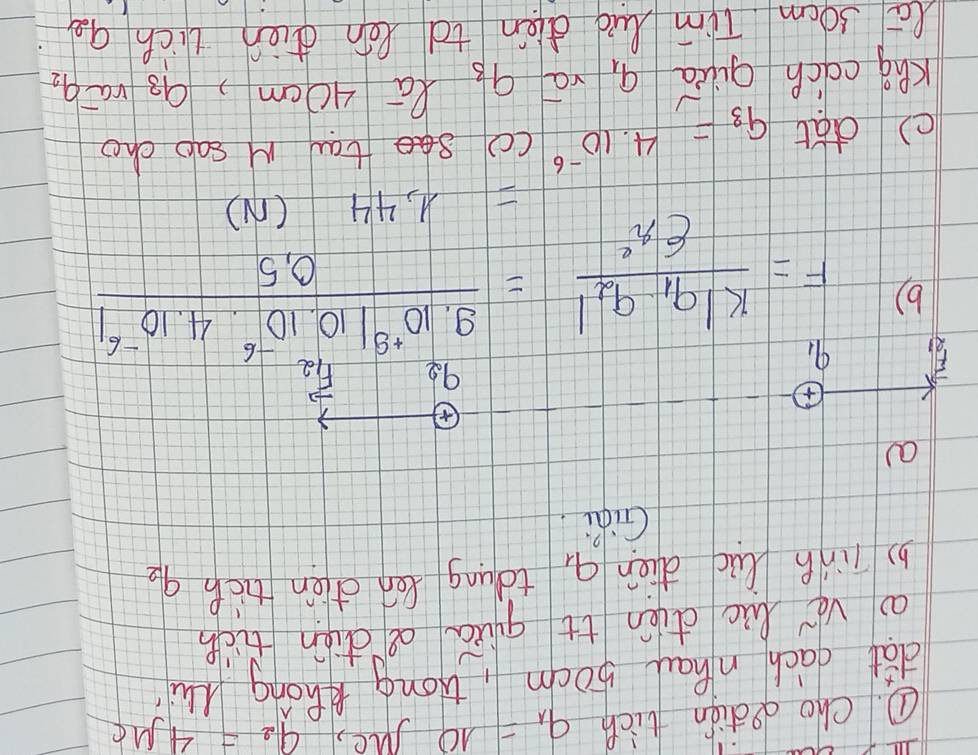 ①. Cho 2 điện tích q₁ = 10 μC, q₂ = 4 μC
đặt cách nhau 50cm, trong không khí
a) Vẽ lực điện tt giữa 2 điện tích
b) Tính lực điện q₁ tdụng lên điện tích q₂
Giải.
a)
q₁ q₂ F₁₂
b) F = K|q₁.q₂| / εr² = 9.10⁺⁹|10.10⁻⁶.4.10⁻⁶| / 0,5
= 1,44 (N)
c) đặt q₃ = 4.10⁻⁶ (C) tại M sao cho
khg cách giữa q₁ và q₃ là 40cm, q₃ và q₂
là 30cm. Tìm lực điện td lên điện tích q₂.